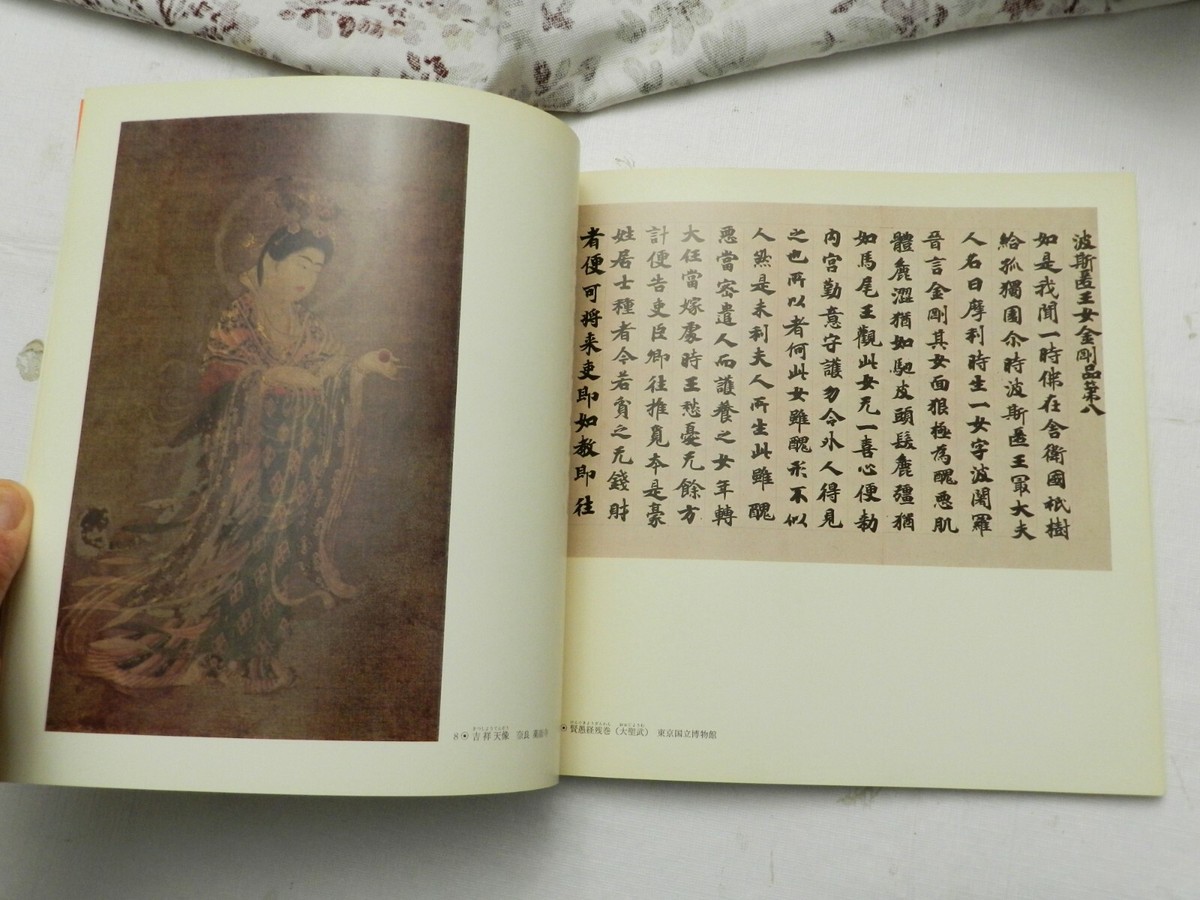 8 吉祥天像 奈良 薬師寺
波斯匿王女金剛品第八
如是我聞一時佛在舍衛國祇樹
給孤獨園尒時波斯匿王冣大夫
人名曰摩利時生一女字波闍羅
晉言金剛其女面狠極為醜惡肌
體麁澀猶如馳皮頭髮麁彊猶
如馬尾王觀此女无一喜心便勅
內宮勤意守護勿令外人得見
之也所以者何此女雖醜形不似
人然是末利夫人所生此雖醜
惡當密遣人而護養之女年轉
大任當嫁處時王愁憂无餘方
計便告吏臣卿往推覓本是豪
姓居士種者今若貧乏无錢財
者便可将来吏即如教即往
賢愚経残巻（大聖武） 東京国立博物館